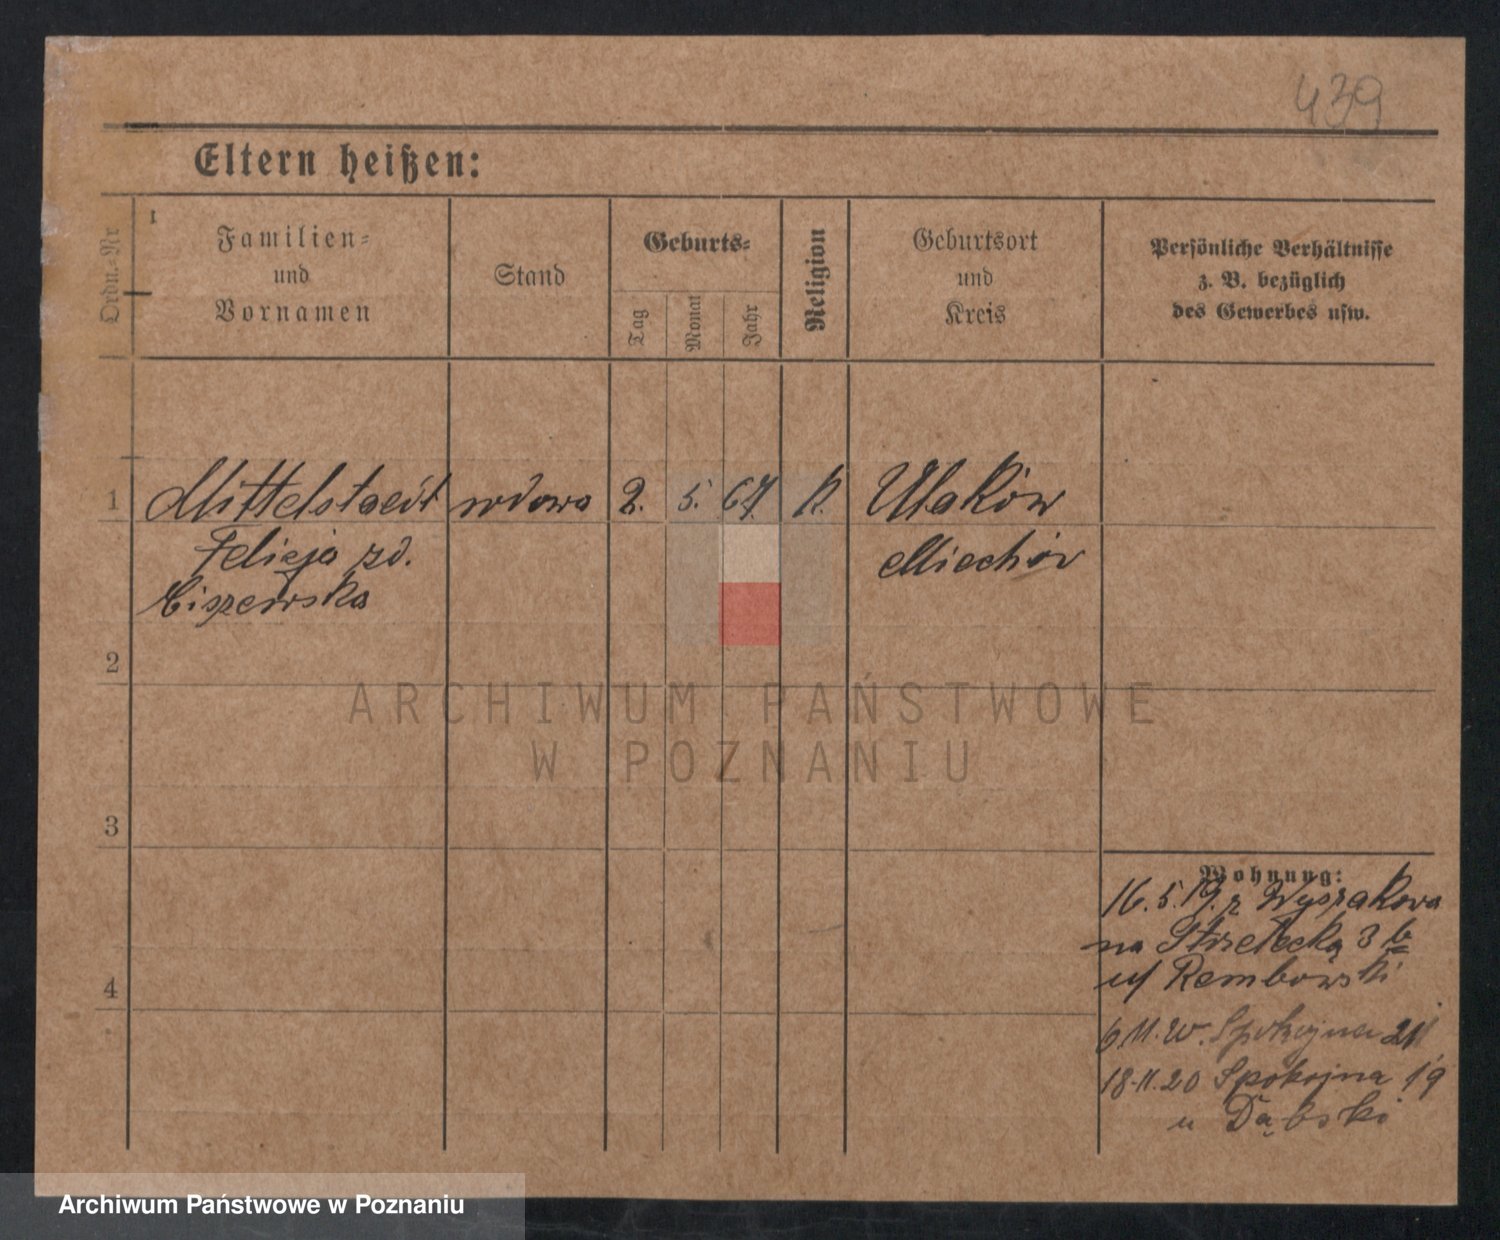 439
Eltern heißen:
Ordn.-Nr
1
Familien=
und
Vornamen
Stand
Geburts=
Tag
Monat
Jahr
Religion
Geburtsort
und
Kreis
Persönliche Verhältnisse
z. B. bezüglich
des Gewerbes usw.
1 Mittelstaedt wdowa 2. 5. 67. k. Ulaków
Felicja zd. Miechów
Ciszewska
2
ARCHIWUM PAŃSTWOWE
W POZNANIU
3
Wohnung:
16.5.19. z Wyszakowa
na Strzelecką 3 b
u/ Rembowski
4
6.11.20. Spokojna 21
18.11.20 Spokojna 19
u Dąbski
Archiwum Państwowe w Poznaniu